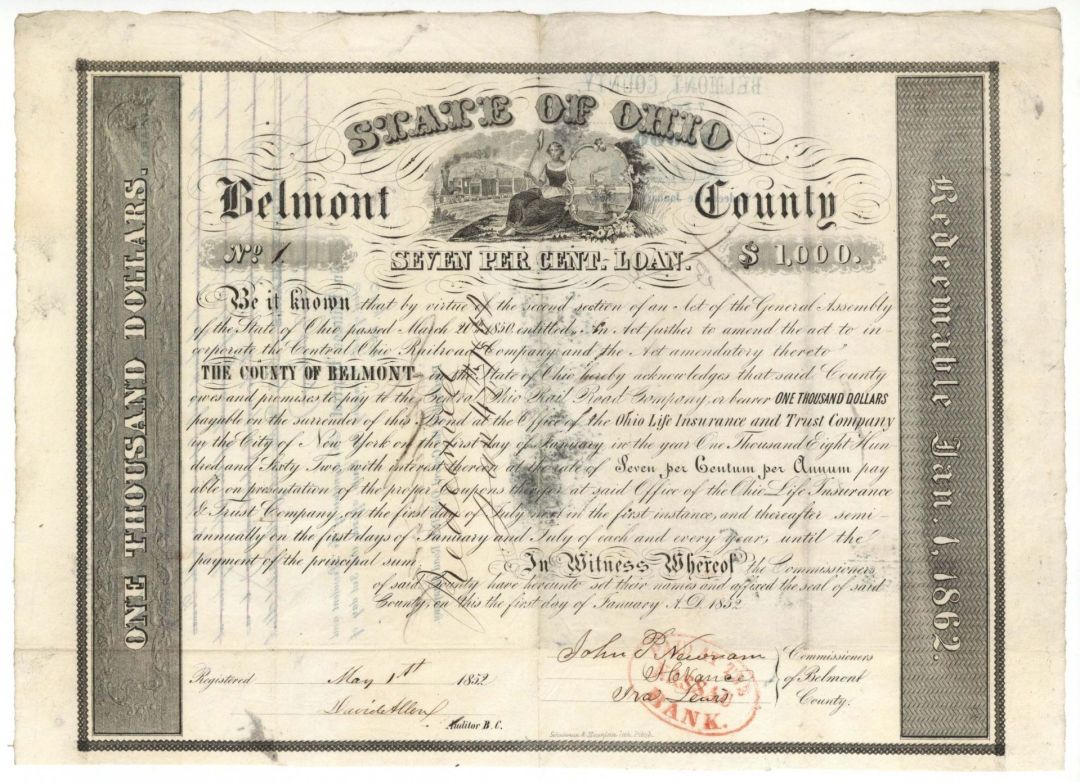 STATE OF OHIO
Belmont County
No 1.
$ 1,000.
SEVEN PER CENT. LOAN.
Be it known that by virtue of the second section of an Act of the General Assembly
of the State of Ohio passed March 20th 1850 entitled, An Act further to amend the act to in-
corporate the Central Ohio Railroad Company and the Act amendatory thereto"
THE COUNTY OF BELMONT in the State of Ohio hereby acknowledges that said County
owes and promises to pay to the Central Ohio Rail Road Company or bearer ONE THOUSAND DOLLARS
payable on the surrender of this Bond at the Office of the Ohio Life Insurance and Trust Company
in the City of New York on the first day of January in the year One Thousand Eight Hun
dred and Sixty Two, with interest thereon at the rate of Seven per Centum per Annum pay
able on presentation of the proper Coupons thereof at said Office of the Ohio Life Insurance
& Trust Company, on the first day of July next in the first instance, and thereafter semi-
annually on the first days of January and July of each and every year, until the
payment of the principal sum.
In Witness Whereof the Commissioners
of said County have hereunto set their names and affixed the seal of said
County, on this the first day of January A.D. 1852
ONE THOUSAND DOLLARS.
Redeemable Jan. 1, 1862.
Registered May 1th 1852
Auditor B.C.
John P Newnam
Commissioners
of Belmont
County.
BANK.
BELMONT COUNTY